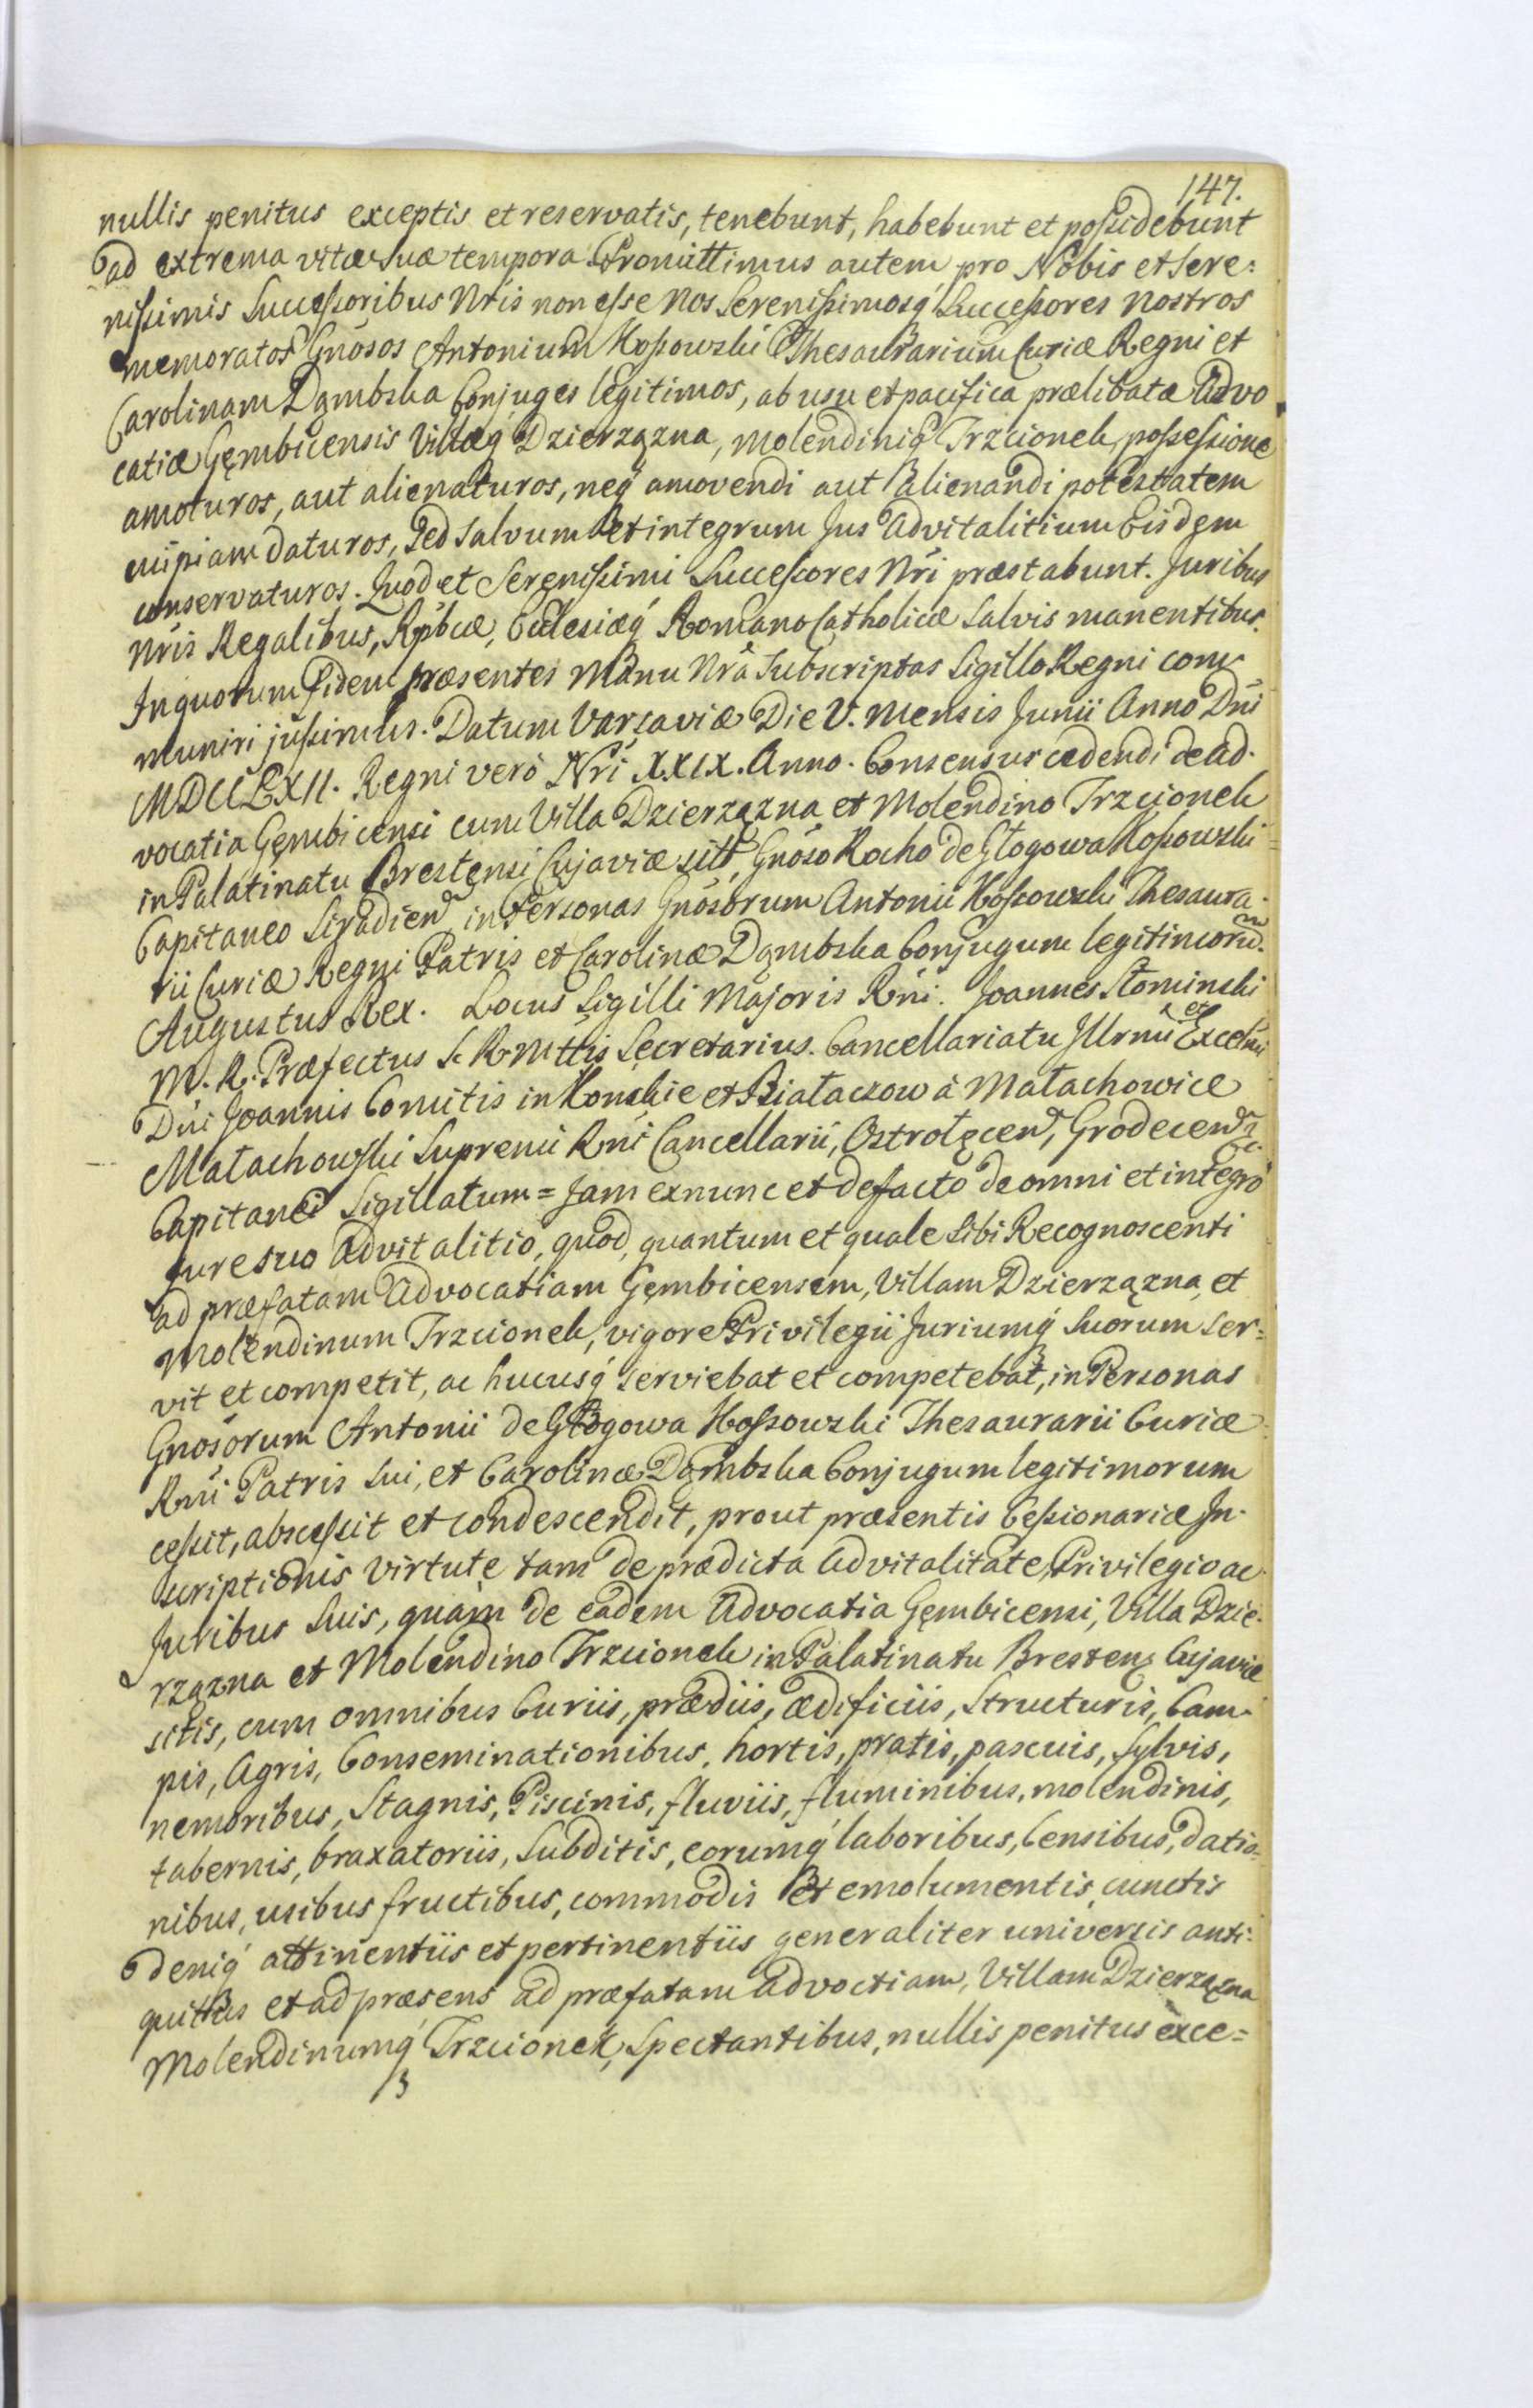 147.
nullis penitus exceptis et reservatis, tenebunt, habebunt et possidebunt
ad extrema vitæ suæ tempora. Promittimus autem pro Nobis et Sere=
nissimis Successoribus Nris non esse Nos Serenissimosq́ Successores nostros
memoratos Gnosos Antonium Kossowski Thesaurarium Curiæ Regni et
Carolinam Dąmbska Conjuges legitimos, ab usu et pacifica prælibatæ Advo
catiæ Gęmbicensis Villæq́ Dzierzązna, Molendiniq́ Trzcionek, possessione
amoturos, aut alienaturos, neq́ amovendi aut alienandi potestatem
cuipiam daturos, Sed salvum et integrum Jus Advitalitium Eisdem
conservaturos. Quod et Serenissimi Successores Nri præstabunt. Juribus
Nris Regalibus, Rpbcæ, Ecclesiæq́ Romano Catholicæ salvis manentibus.
In quorum fidem præsentes Manu Nrâ Subscriptas Sigillo Regni com
muniri jussimus. Datum Varsaviæ Die V. Mensis Junii Anno Dni
MDCCLXII. Regni verò Nri XXIX. Anno. Consensus cedendi de ad-
vocatia Gęmbicensi cum Villa Dzierzązna et Molendino Trzcionek
in Palatinatu Brestensi Cujaviæ sitt, Gnoso Rocho de Głogowa Kossowski=
Capitaneo Siradien, in Personas Gnosorum Antonii Kossowski Thesaura-
rii Curiæ Regni Patris et Carolinæ Dąmbska Conjugum legitimorum.
Augustus Rex. Locus Sigilli Majoris Rni. Joannes Słominski
M. R. Præfectus S. R. Mttis Secretarius. Cancellariatu Illrmi et Excelmi
Dni Joannis Comitis in Konskie et Białaczow à Małachowice
Małachowski Supremi Rni Cancellarii, Ostrołęcen, Grodecen &c.
Capitanei Sigillatum = Jam ex nunc et de facto de omni et integro
Jure suo Advitalitio, quod, quantum et quale Sibi Recognoscenti
ad præfatam Advocatiam Gęmbicensem, Villam Dzierzązna, et
Molendinum Trzcionek, vigore Privilegii Juriumq́ suorum ser=
vit et competit, ac hucusq́ serviebat et competebat, in Personas
Gnosorum Antonii de Głogowa Kossowski Thesaurarii Curiæ
Rni Patris sui, et Carolinæ Dąmbska Conjugum legitimorum
cessit, abscessit et condescendit, prout præsentis Cessionariæ In-
scriptionis virtute tam de prædicta Advitalitate, Privilegio ac
Juribus suis, quàm de eadem Advocatia Gęmbicensi, Villa Dzie-
rzązna et Molendino Trzcionek in Palatinatu Bresten Cujaviæ
sitis, cum omnibus Curiis, prædiis, ædificiis, Structuris, Cam-
pis, Agris, Conseminationibus, hortis, pratis, pascuis, Sylvis,
nemoribus, Stagnis, Piscinis, fluviis, fluminibus, molendinis,
tabernis, braxatoriis, Subditis, eorumq́ laboribus, Censibus, datio-
nibus, usibus fructibus, commodis et emolumentis, cunctis
deniq́ attinentiis et pertinentiis generaliter universis anti-
quittus et ad præsens ad præfatam Advoctiam, Villam Dzierzązna
Molendinumq́ Trzcionek, Spectantibus, nullis penitus exce=